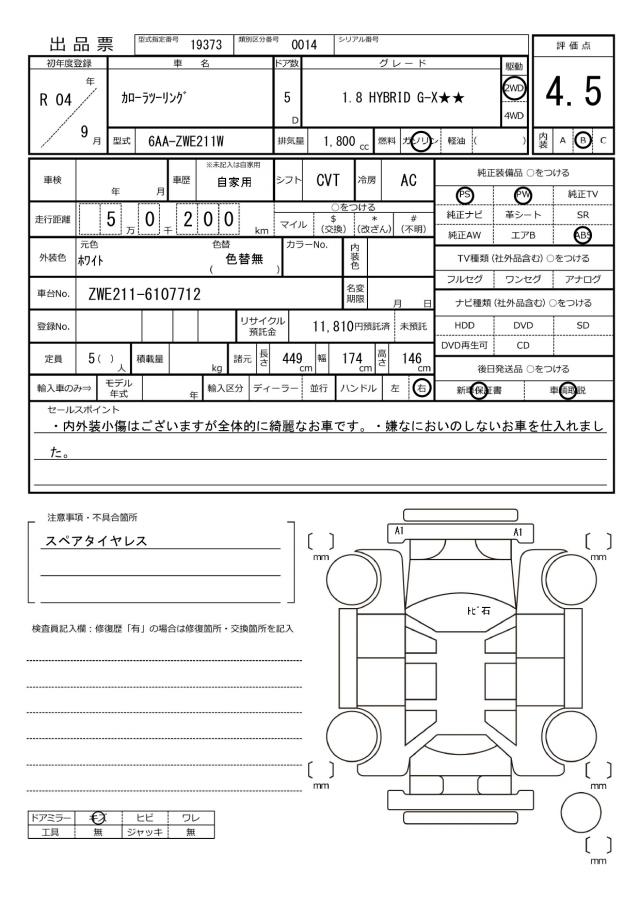 出品票 型式指定番号 19373 類別区分番号 0014 シリアル番号
評価点
4.5
内装 A B C
初年度登録 車名 ドア数 グレード 駆動
R 04 年 9 月
カローラツーリング 5 D 1.8 HYBRID G-X★★ 2WD
4WD
型式 6AA-ZWE211W 排気量 1,800 cc 燃料 ガソリン 軽油 ( )
車検 年 月 車歴 ※未記入は自家用 自家用 シフト CVT 冷房 AC
走行距離 5 万 0 千 200 km
○をつける
マイル $(交換) *(改ざん) #(不明)
外装色 元色 ホワイト 色替 ( 色替無 ) カラーNo. 内装色
車台No. ZWE211-6107712 名変期限 月 日
登録No. リサイクル預託金 11,810円預託済 未預託
定員 5( )人 積載量 kg 諸元 長さ 449 cm 幅 174 cm 高さ 146 cm
輸入車のみ⇒ モデル年式 年 輸入区分 ディーラー 並行 ハンドル 左 右
純正装備品 ○をつける
PS PW 純正TV
純正ナビ 革シート SR
純正AW エアB ABS
TV種類(社外品含む)○をつける
フルセグ ワンセグ アナログ
ナビ種類(社外品含む)○をつける
HDD DVD SD
DVD再生可 CD
後日発送品 ○をつける
新車保証書 車輌取説
セールスポイント
・内外装小傷はございますが全体的に綺麗なお車です。・嫌なにおいのしないお車を仕入れまし
た。
注意事項・不具合箇所
スペアタイヤレス
検査員記入欄：修復歴「有」の場合は修復箇所・交換箇所を記入
A1 A1
[ ] mm [ ] mm
トビ石
[ ] mm [ ] mm
[ ] mm
ドアミラー キズ ヒビ ワレ
工具 無 ジャッキ 無